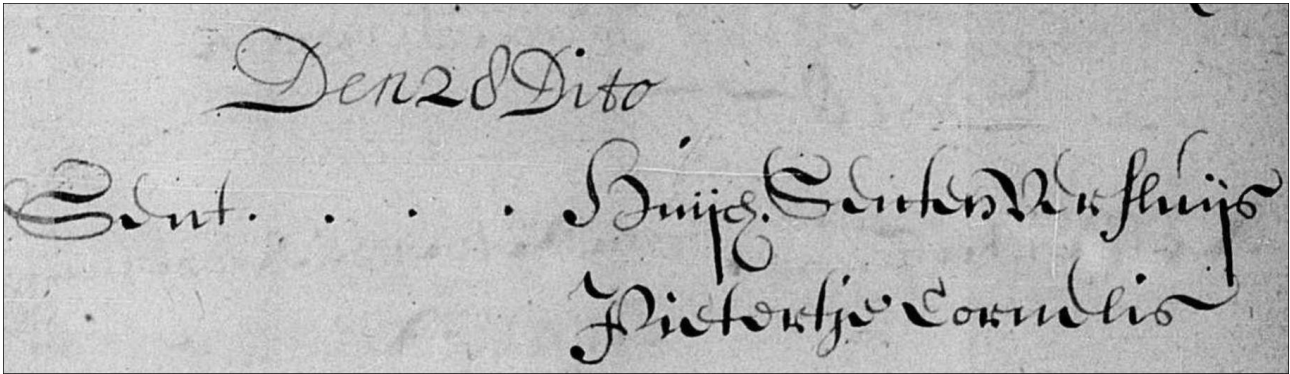 Den 28 Dito
Sent . . . . Huijch. Senten Versluijs
Pietertje Cornelis